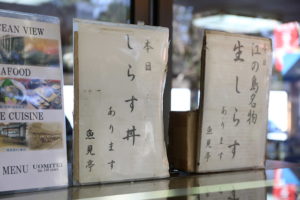 EAN VIEW
AFOOD
E CUISINE
MENU UOMITEI
本日
しらす丼
あります
魚見亭
本日
江の島名物
生しらす
あります
魚見亭